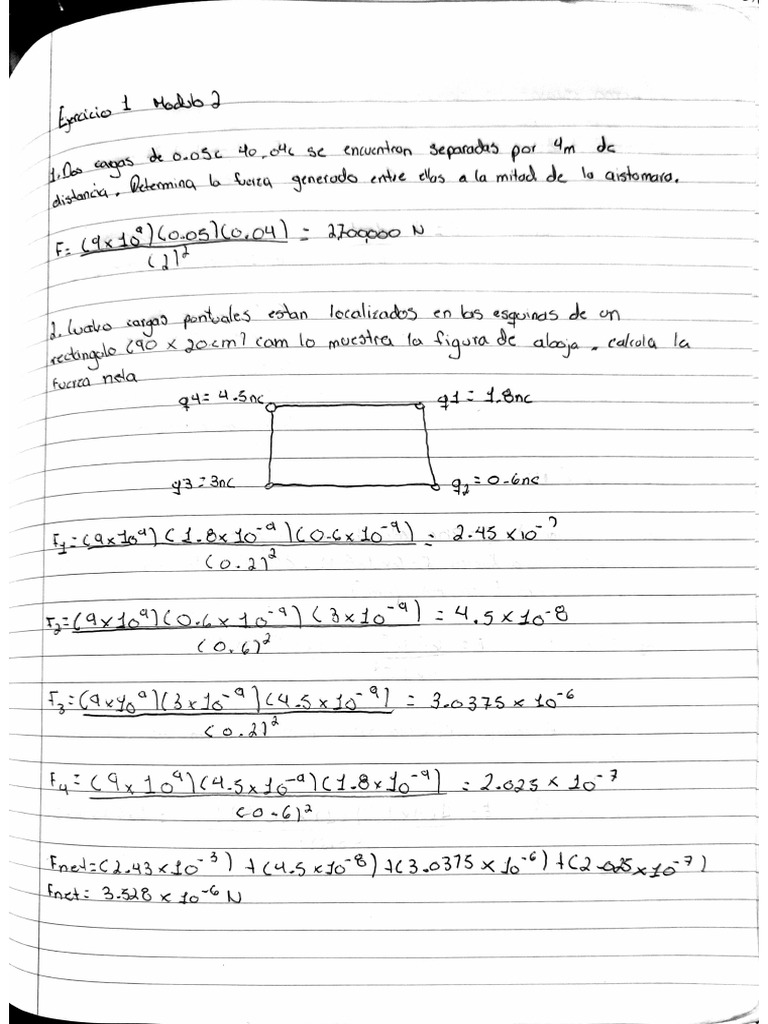 Ejercicio 1 Modulo 2
1. Dos cargas de 0.05c y 0.04c se encuentran separadas por 4m de
distancia. Determina la fuerza generado entre ellas a la mitad de la
F= (9x10⁹)(0.05)(0.04) = 2,700,000 N
(2)²
2. Cuatro cargas pontuales estan localizados en las esquinas de un
rectángulo (90 x 20cm) com lo muestra la figura de abaja. calcula la
fuerza neta
q4= 4.5nc q1= 1.8nc
q3=3nc q2=0.6nc
F1=(9x10⁹)(1.8x10⁻⁹)(0.6x10⁻⁹) = 2.45 x10⁻⁷
(0.2)²
F2=(9x10⁹)(0.6x10⁻⁹)(3x10⁻⁹) = 4.5x10-8
(0.6)²
F3=(9x10⁹)(3x10⁻⁹)(4.5x10⁻⁹) = 3.0375x10⁻⁶
(0.2)²
F4=(9x10⁹)(4.5x10⁻⁹)(1.8x10⁻⁹) = 2.025x10⁻⁷
(0.6)²
Fnet=(2.43x10⁻³)+(4.5x10⁻⁸)+(3.0375x10⁻⁶)+(2.025x10⁻⁷)
Fnet= 3.528x10⁻⁶ N